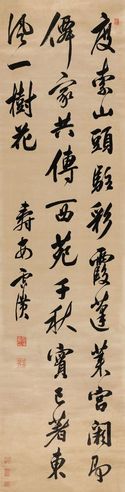 度索山頭駐彩霞蓬萊宮闕即
僊家共傳西苑千秋實已著東
風一樹花
壽